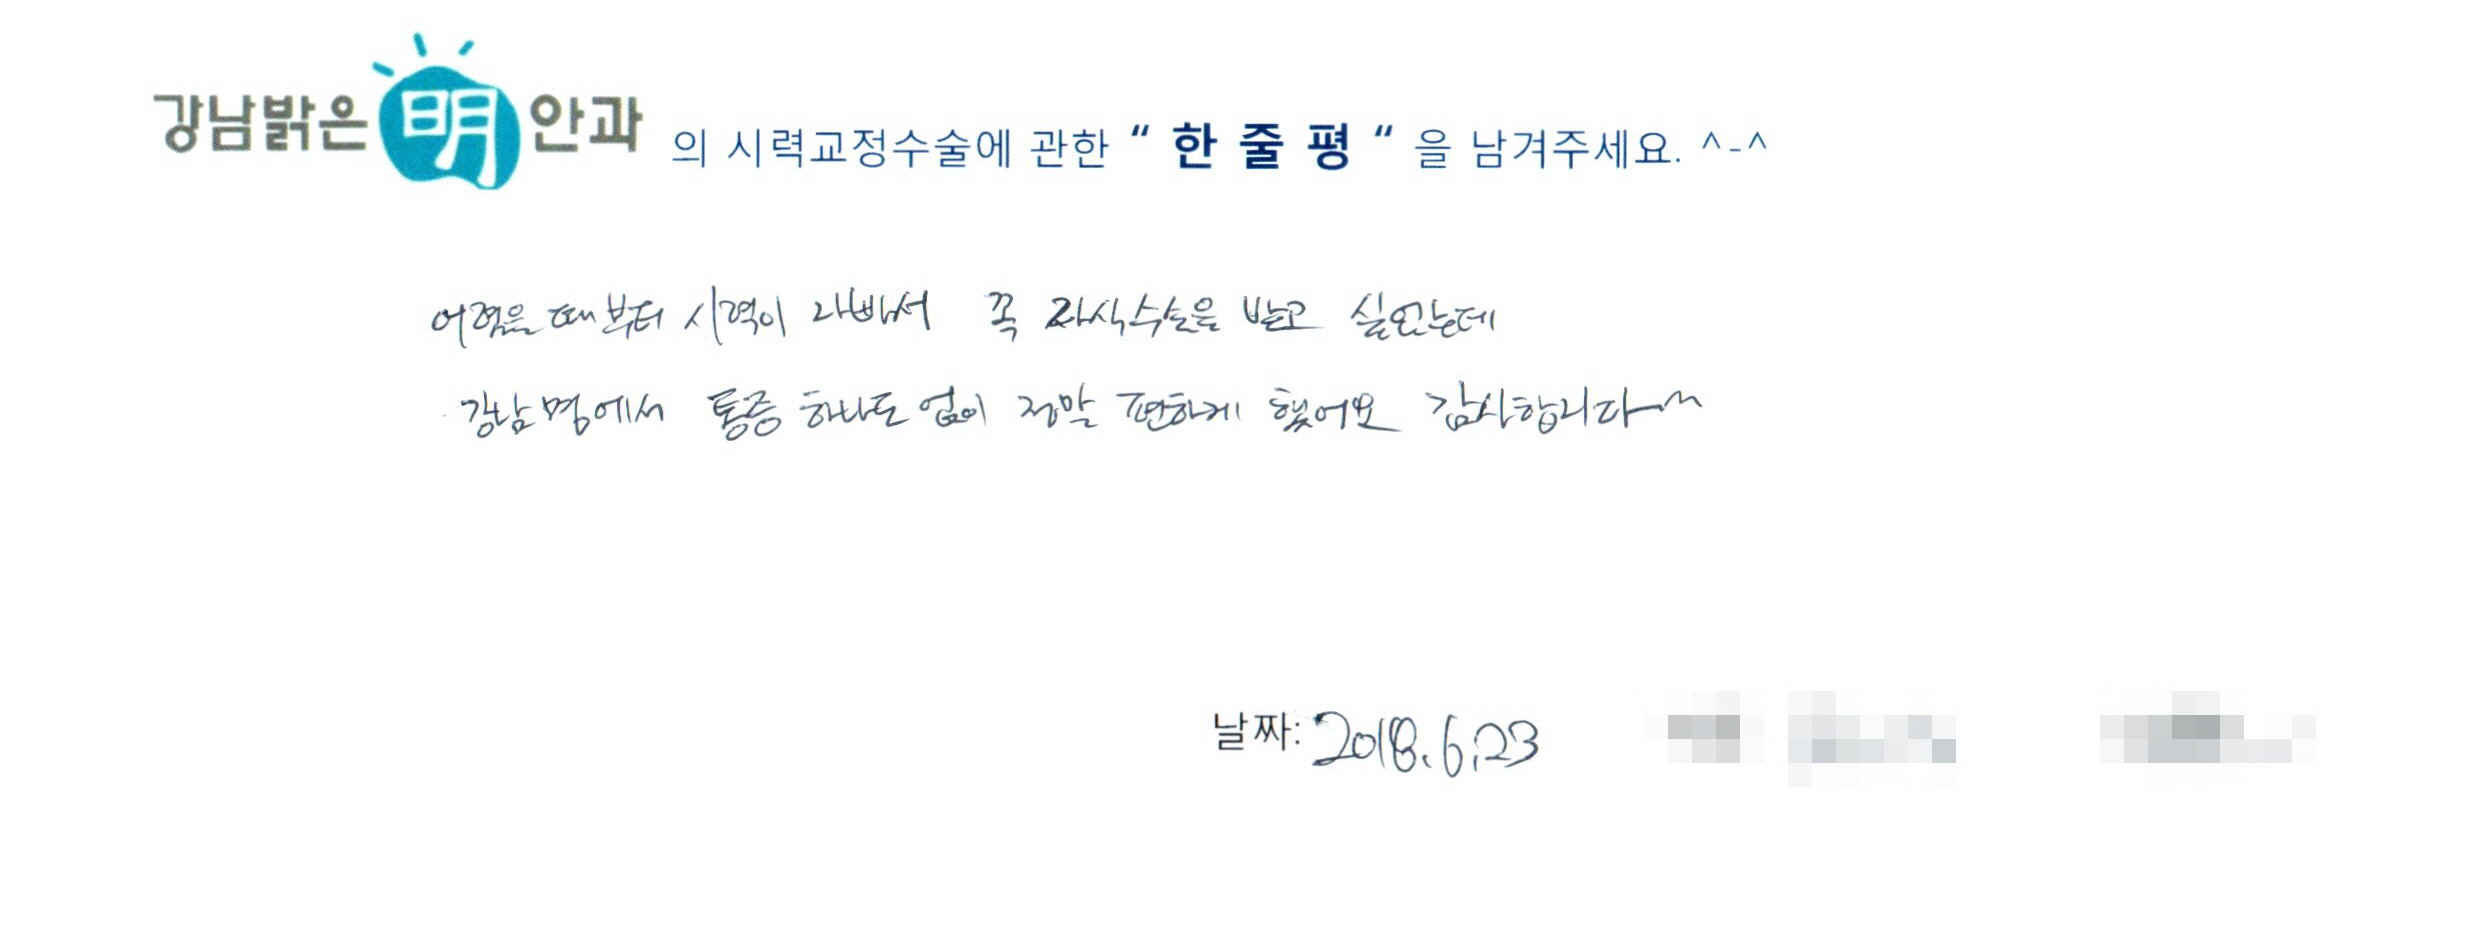 강남밝은 明 안과 의 시력교정수술에 관한 “ 한 줄 평 “ 을 남겨주세요. ^-^
어렸을 때부터 시력이 나빠서 꼭 라식수술을 받고 싶었는데
강남명에서 통증 하나도 없이 정말 편하게 했어요 감사합니다~^^
날짜: 2018. 6. 23